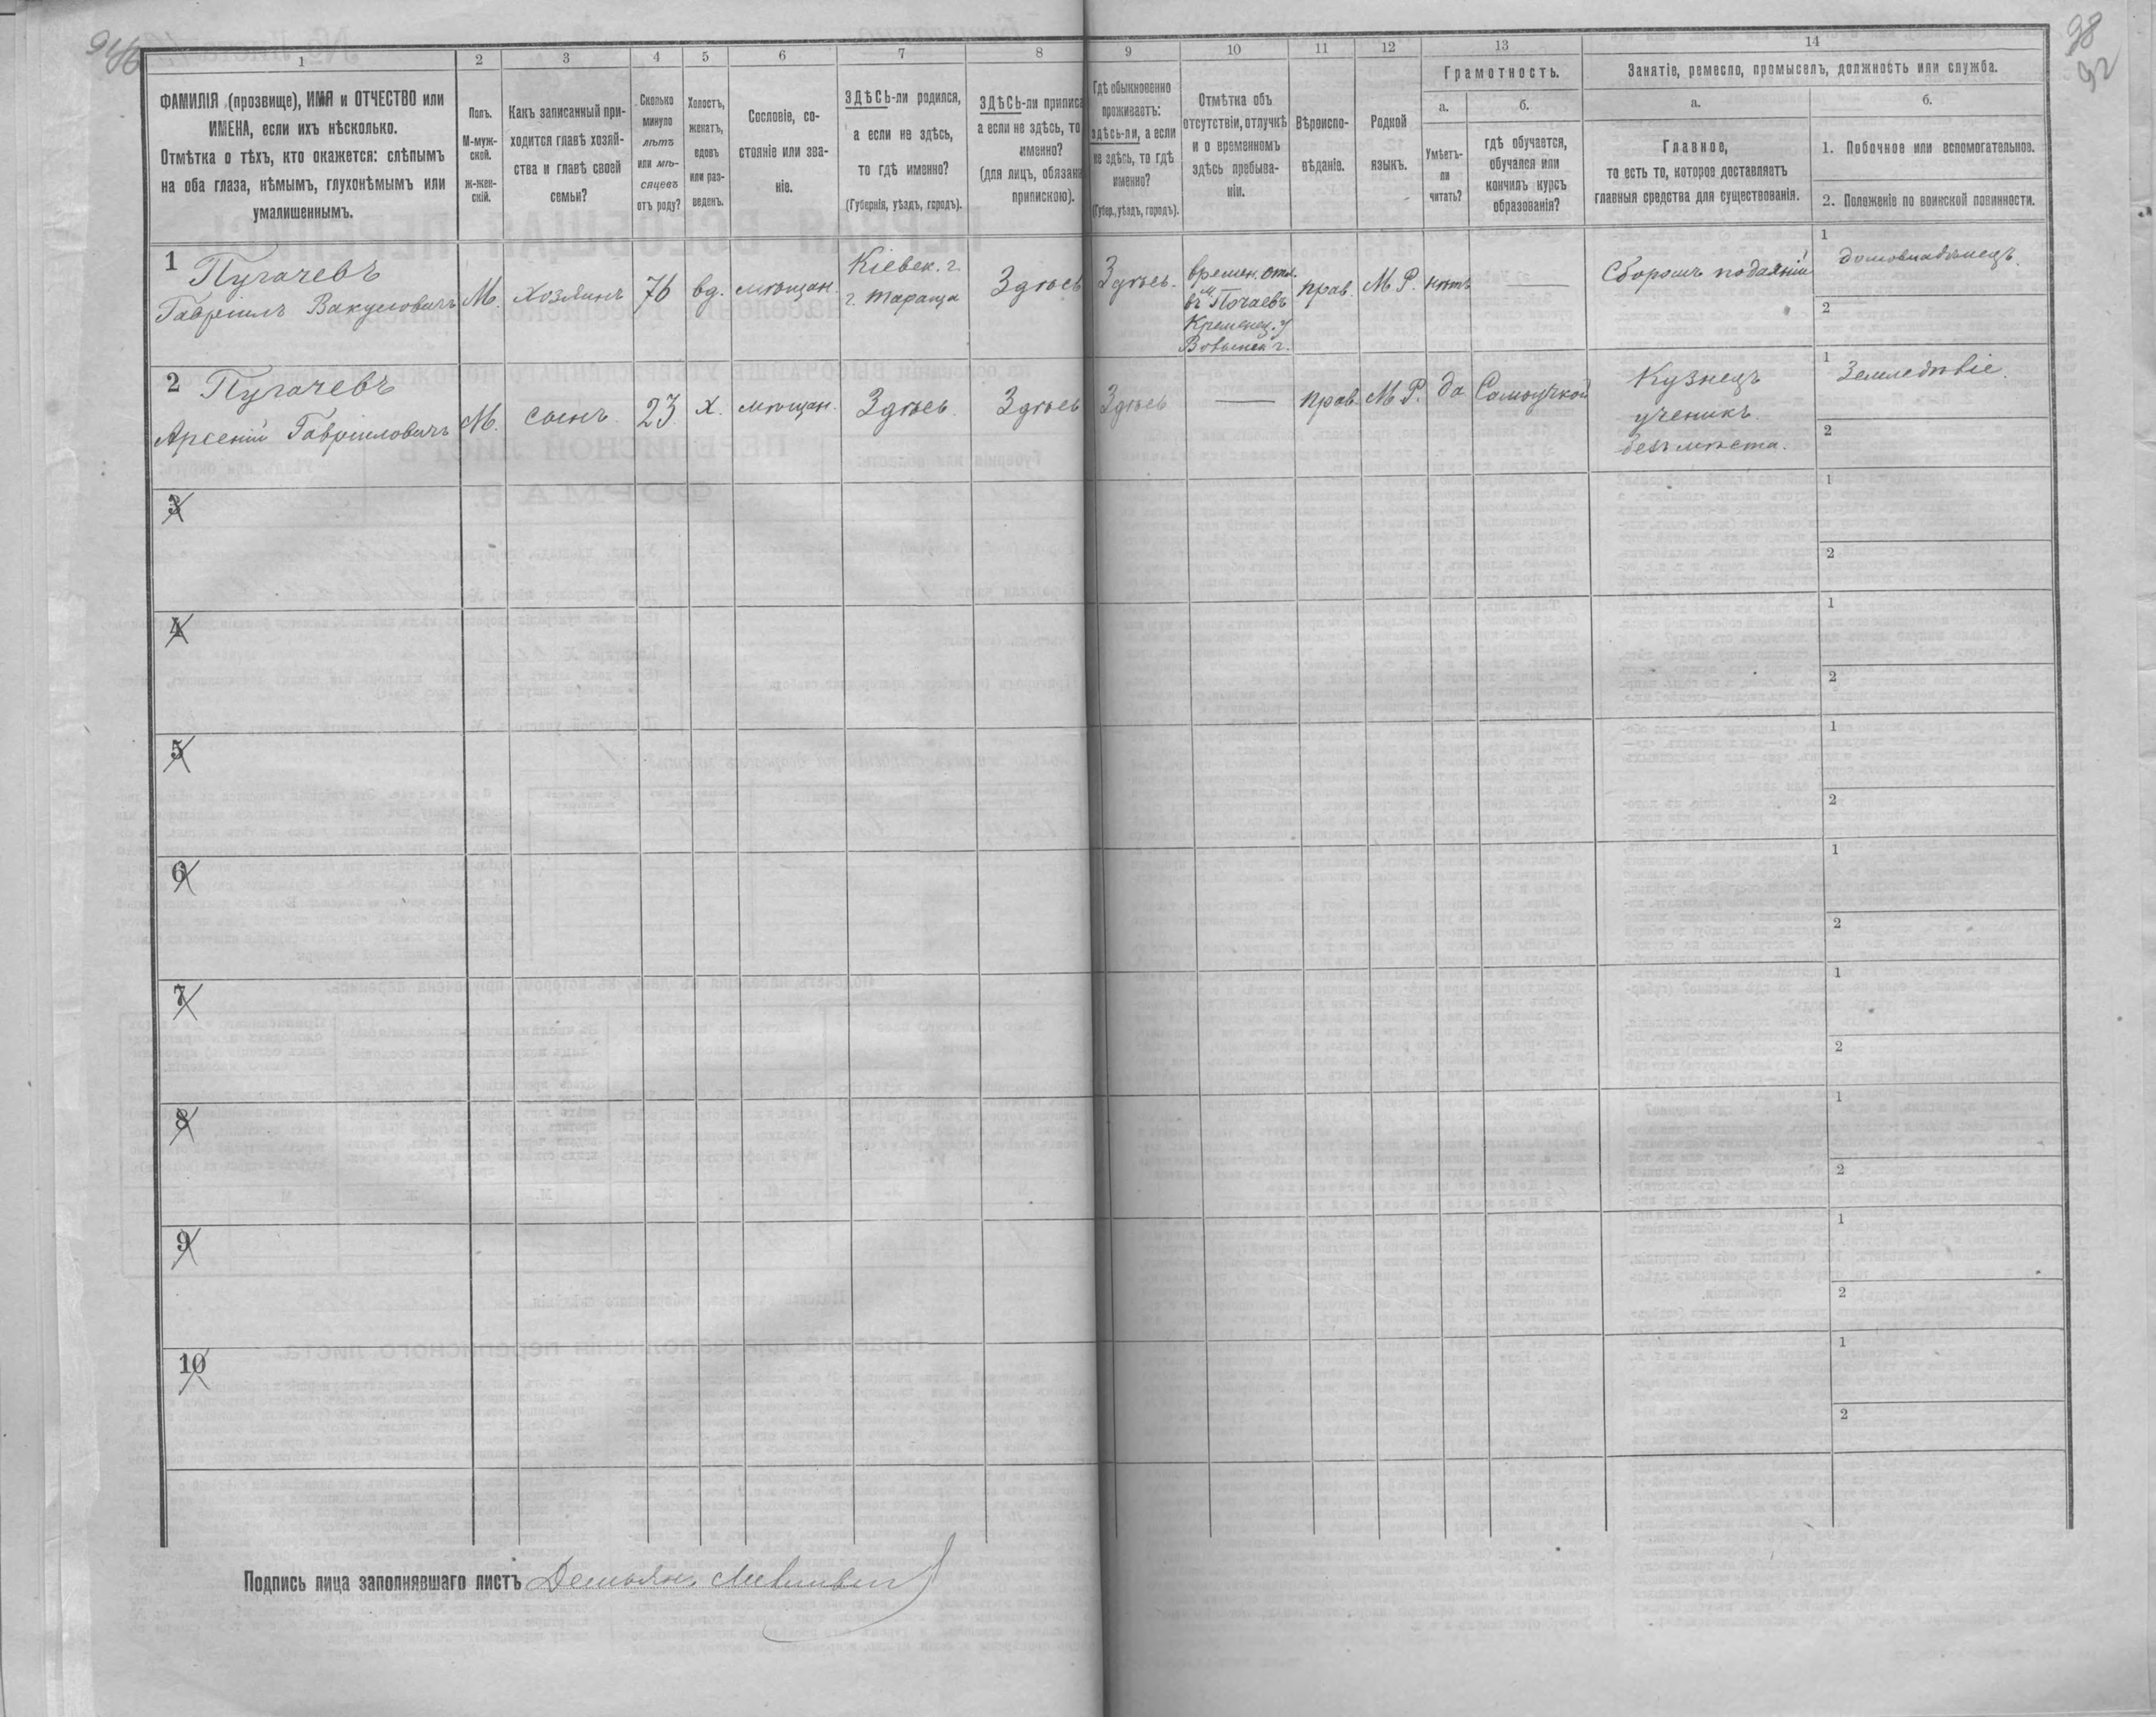 98
92
1
2
3
4
5
6
7
8
9
10
11
12
13
14
ФАМИЛІЯ (прозвище), ИМЯ и ОТЧЕСТВО или
ИМЕНА, если ихъ нѣсколько.
Отмѣтка о тѣхъ, кто окажется: слѣпымъ
на оба глаза, нѣмымъ, глухонѣмымъ или
умалишеннымъ.
Полъ.
М-муж-
ской.
Ж-жен-
скій.
Какъ записанный при-
ходится главѣ хозяй-
ства и главѣ своей
семьи?
Сколько
минуло
лѣтъ
или мѣ-
сяцевъ
отъ роду?
Холостъ,
женатъ,
вдовъ
или раз-
веденъ.
Сословіе, со-
стояніе или зва-
ніе.
ЗДѢСЬ-ли родился,
а если не здѣсь,
то гдѣ именно?
(Губернія, уѣздъ, городъ).
ЗДѢСЬ-ли приписа
а если не здѣсь, то
именно?
(для лицъ, обязани
припискою).
Гдѣ обыкновенно
проживаетъ:
здѣсь-ли, а если
не здѣсь, то гдѣ
именно?
(Губер., уѣздъ, городъ).
Отмѣтка объ
отсутствіи, отлучкѣ
и о временномъ
здѣсь пребыва-
ніи.
Вѣроиспо-
вѣданіе.
Родной
языкъ.
Грамотность.
а.
б.
Умѣетъ-
ли
читать?
гдѣ обучается,
обучался или
кончилъ курсъ
образованія?
Занятіе, ремесло, промыселъ, должность или служба.
а.
б.
Главное,
то есть то, которое доставляетъ
главныя средства для существованія.
1. Побочное или вспомогательное.
2. Положеніе по воинской повинности.
1
Пугачевъ
Гавріилъ Вакуловичъ
М.
хозяинъ
76
вд.
мѣщан.
Кіевск. г.
г. Тараща
Здѣсь
Здѣсь.
времен. отл.
въ м. Почаевъ
Кременец. у
Волынск г.
прав.
М. Р.
нѣтъ
—
Сборомъ подаяній
1
домовладѣлецъ.
2
2
Пугачевъ
Арсеній Гавріиловичъ
М.
сынъ.
23.
х.
мѣщан.
Здѣсь.
Здѣсь
Здѣсь
—
прав
М. Р.
да
Самоучкой
Кузнецъ
ученикъ
безъ мѣста.
1
Земледѣліе.
2
3
1
2
4
1
2
5
1
2
6
1
2
7
1
2
8
1
2
9
1
2
10
1
2
Подпись лица заполнявшаго листъ